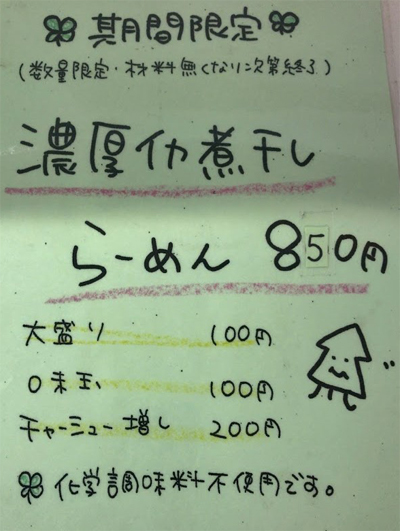 期間限定
(数量限定・材料無くなり次第終了)
濃厚イカ煮干し
らーめん 850円
大盛り 100円
味玉 100円
チャーシュー増し 200円
化学調味料不使用です。